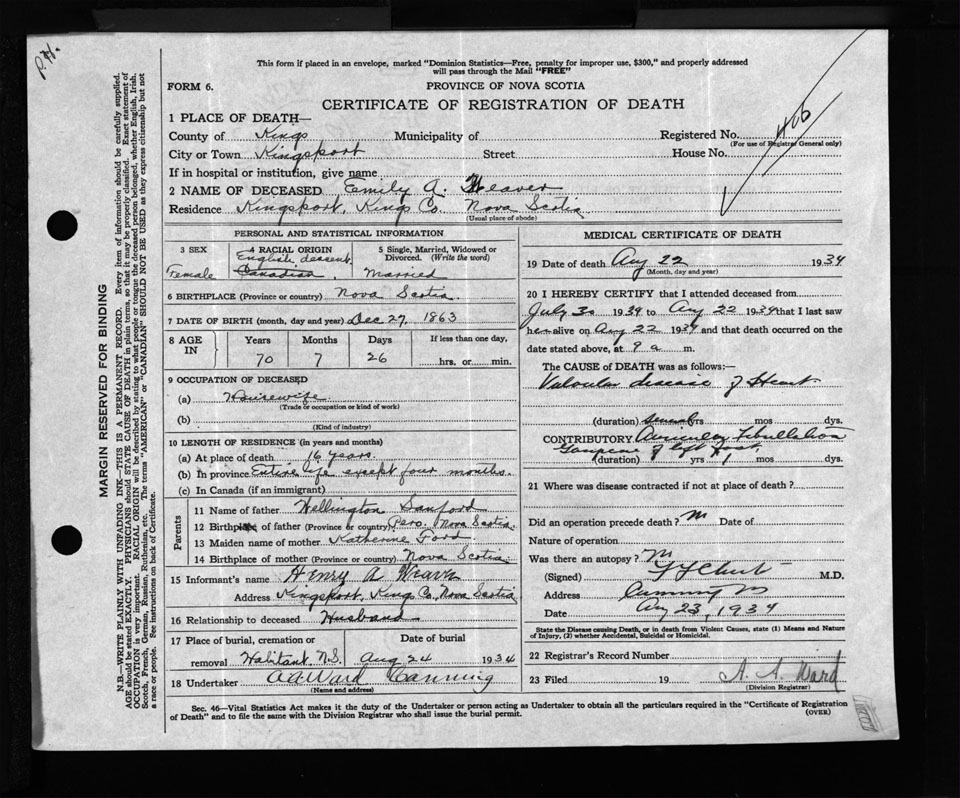 P.H.
This form if placed in an envelope, marked "Dominion Statistics—Free, penalty for improper use, $300," and properly addressed
will pass through the Mail "FREE"
FORM 6. PROVINCE OF NOVA SCOTIA
CERTIFICATE OF REGISTRATION OF DEATH
1 PLACE OF DEATH—
County of Kings Municipality of Registered No. 406
(For use of Registrar General only)
City or Town Kingsport Street House No.
If in hospital or institution, give name
2 NAME OF DECEASED Emily A. Weaver
Residence Kingsport, Kings Co. Nova Scotia
(Usual place of abode)
PERSONAL AND STATISTICAL INFORMATION
3 SEX 4 RACIAL ORIGIN 5 Single, Married, Widowed or
Divorced. (Write the word)
English descent
Female Canadian. Married
6 BIRTHPLACE (Province or country) Nova Scotia
7 DATE OF BIRTH (month, day and year) Dec 27, 1863
8 AGE IN Years Months Days If less than one day,
70 7 26 hrs. or min.
9 OCCUPATION OF DECEASED
(a) Housewife
(Trade or occupation or kind of work)
(b)
(Kind of industry)
10 LENGTH OF RESIDENCE (in years and months)
(a) At place of death 16 years.
(b) In province Entire life except four months.
(c) In Canada (if an immigrant)
Parents
11 Name of father Wellington Sanford
12 Birthplace of father (Province or country) Pero. Nova Scotia.
13 Maiden name of mother Katherine Ford
14 Birthplace of mother (Province or country) Nova Scotia
15 Informant's name Henry A Weaver
Address Kingsport, Kings Co, Nova Scotia
16 Relationship to deceased Husband
17 Place of burial, cremation or Date of burial
removal Habitant, N.S. Aug 24 1934
18 Undertaker A A Ward Canning
(Name and address)
MEDICAL CERTIFICATE OF DEATH
19 Date of death Aug 22 1934
(Month, day and year)
20 I HEREBY CERTIFY that I attended deceased from
July 30 1934 to Aug 22 1934 that I last saw
her alive on Aug 22 1934 and that death occurred on
date stated above, at 9 a m.
The CAUSE of DEATH was as follows:—
Valvular disease of Heart
(duration) several yrs mos dys.
CONTRIBUTORY Auricular Fibrillation
Gangrene of left foot
(duration) yrs 1 mos dys.
21 Where was disease contracted if not at place of death?
Did an operation precede death? Date of
Nature of operation
Was there an autopsy?
(Signed) M.D.
Address Canning
Date Aug 23, 1934
State the Disease causing Death, or in death from Violent Causes, state (1) Means and Nature
of Injury, (2) whether Accidental, Suicidal or Homicidal.
22 Registrar's Record Number
23 Filed 19 A. A. Ward
(Division Registrar)
Sec. 46—Vital Statistics Act makes it the duty of the Undertaker or person acting as Undertaker to obtain all the particulars required in the "Certificate of Registration
of Death" and to file the same with the Division Registrar who shall issue the burial permit. (OVER)
MARGIN RESERVED FOR BINDING
N.B.—WRITE PLAINLY WITH UNFADING INK—THIS IS A PERMANENT RECORD. Every item of information should be carefully supplied.
AGE should be stated EXACTLY. PHYSICIANS should STATE CAUSE OF DEATH in plain terms, so that it may be properly classified. Exact statement of
OCCUPATION is very important. RACIAL ORIGIN will be described by stating to what people or tongue the deceased person belonged, whether English, Irish,
Scotch, French, German, Russian, Ruthenian, etc. The terms "AMERICAN" or "CANADIAN" SHOULD NOT BE USED as they express citizenship but not
a race or people. See instructions on back of Certificate.